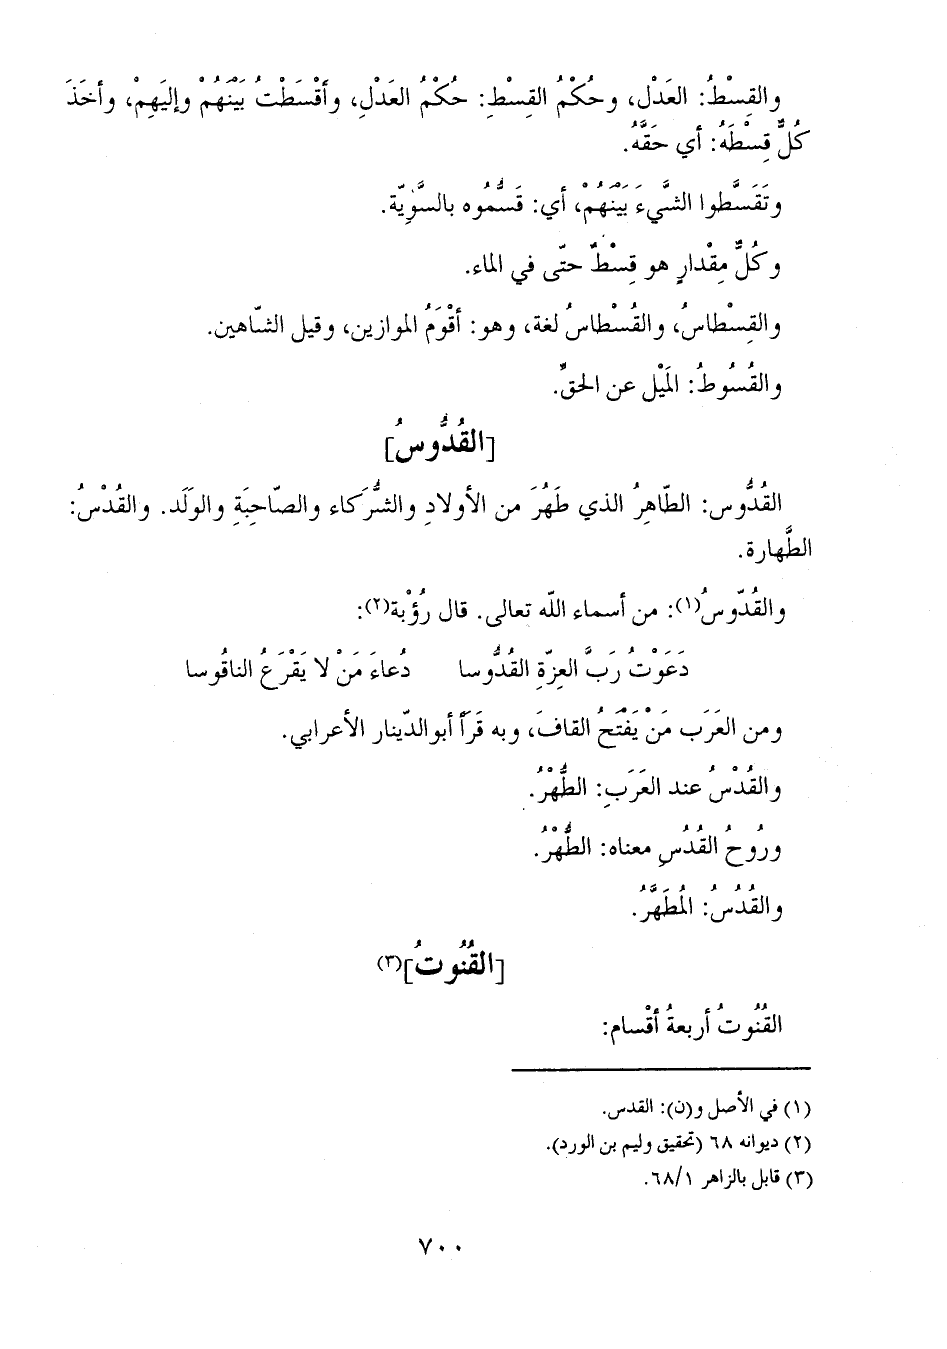 والقِسْطُ: العَدْل، وحُكْمُ القِسْطِ: حُكْمُ العَدْلِ، وأقْسَطْتُ بَيْنَهُمْ وإليَهِمْ، وأخَذَ
كُلٌّ قِسْطَهُ: أي حَقَّهُ.
وتَقَسَّطوا الشَّيءَ بَيْنَهُمْ، أي: قَسُّمُوه بالسَّوِيّة.
وكُلُّ مِقْدارٍ هو قِسْطٌ حتّى في الماء.
والقِسْطاسُ، والقُسْطاسُ لغة، وهو: أقْوَمُ الموازين، وقيل الشّاهين.
والقُسُوطُ: المَيْل عن الحقِّ.
[القُدُّوسُ]
القُدُّوس: الطّاهِرُ الذي طَهُرَ من الأولادِ والشُّرَكاء والصّاحِبَةِ والوَلَد. والقُدْسُ:
الطَّهارة.
والقُدّوسُ(١): من أسماء اللّه تعالى. قال رُؤْبة(٢):
دَعَوْتُ رَبَّ العِزّةِ القُدُّوسا دُعاءَ مَنْ لا يَقْرَعُ الناقُوسا
ومن العَرَب مَنْ يَفْتَحُ القافَ، وبه قَرَأَ أبوالدّينار الأعرابي.
والقُدْسُ عند العَرَبِ: الطُّهْرُ.
ورُوحُ القُدُسِ معناه: الطُّهْرُ.
والقُدُسُ: المُطَهَّرُ.
[القُنُوتُ](٣)
القُنُوتُ أربعةُ أقْسام:
(١) في الأصل و(ن): القدس.
(٢) ديوانه ٦٨ (تحقيق وليم بن الورد).
(٣) قابل بالزاهر ٦٨/١.
٧٠٠